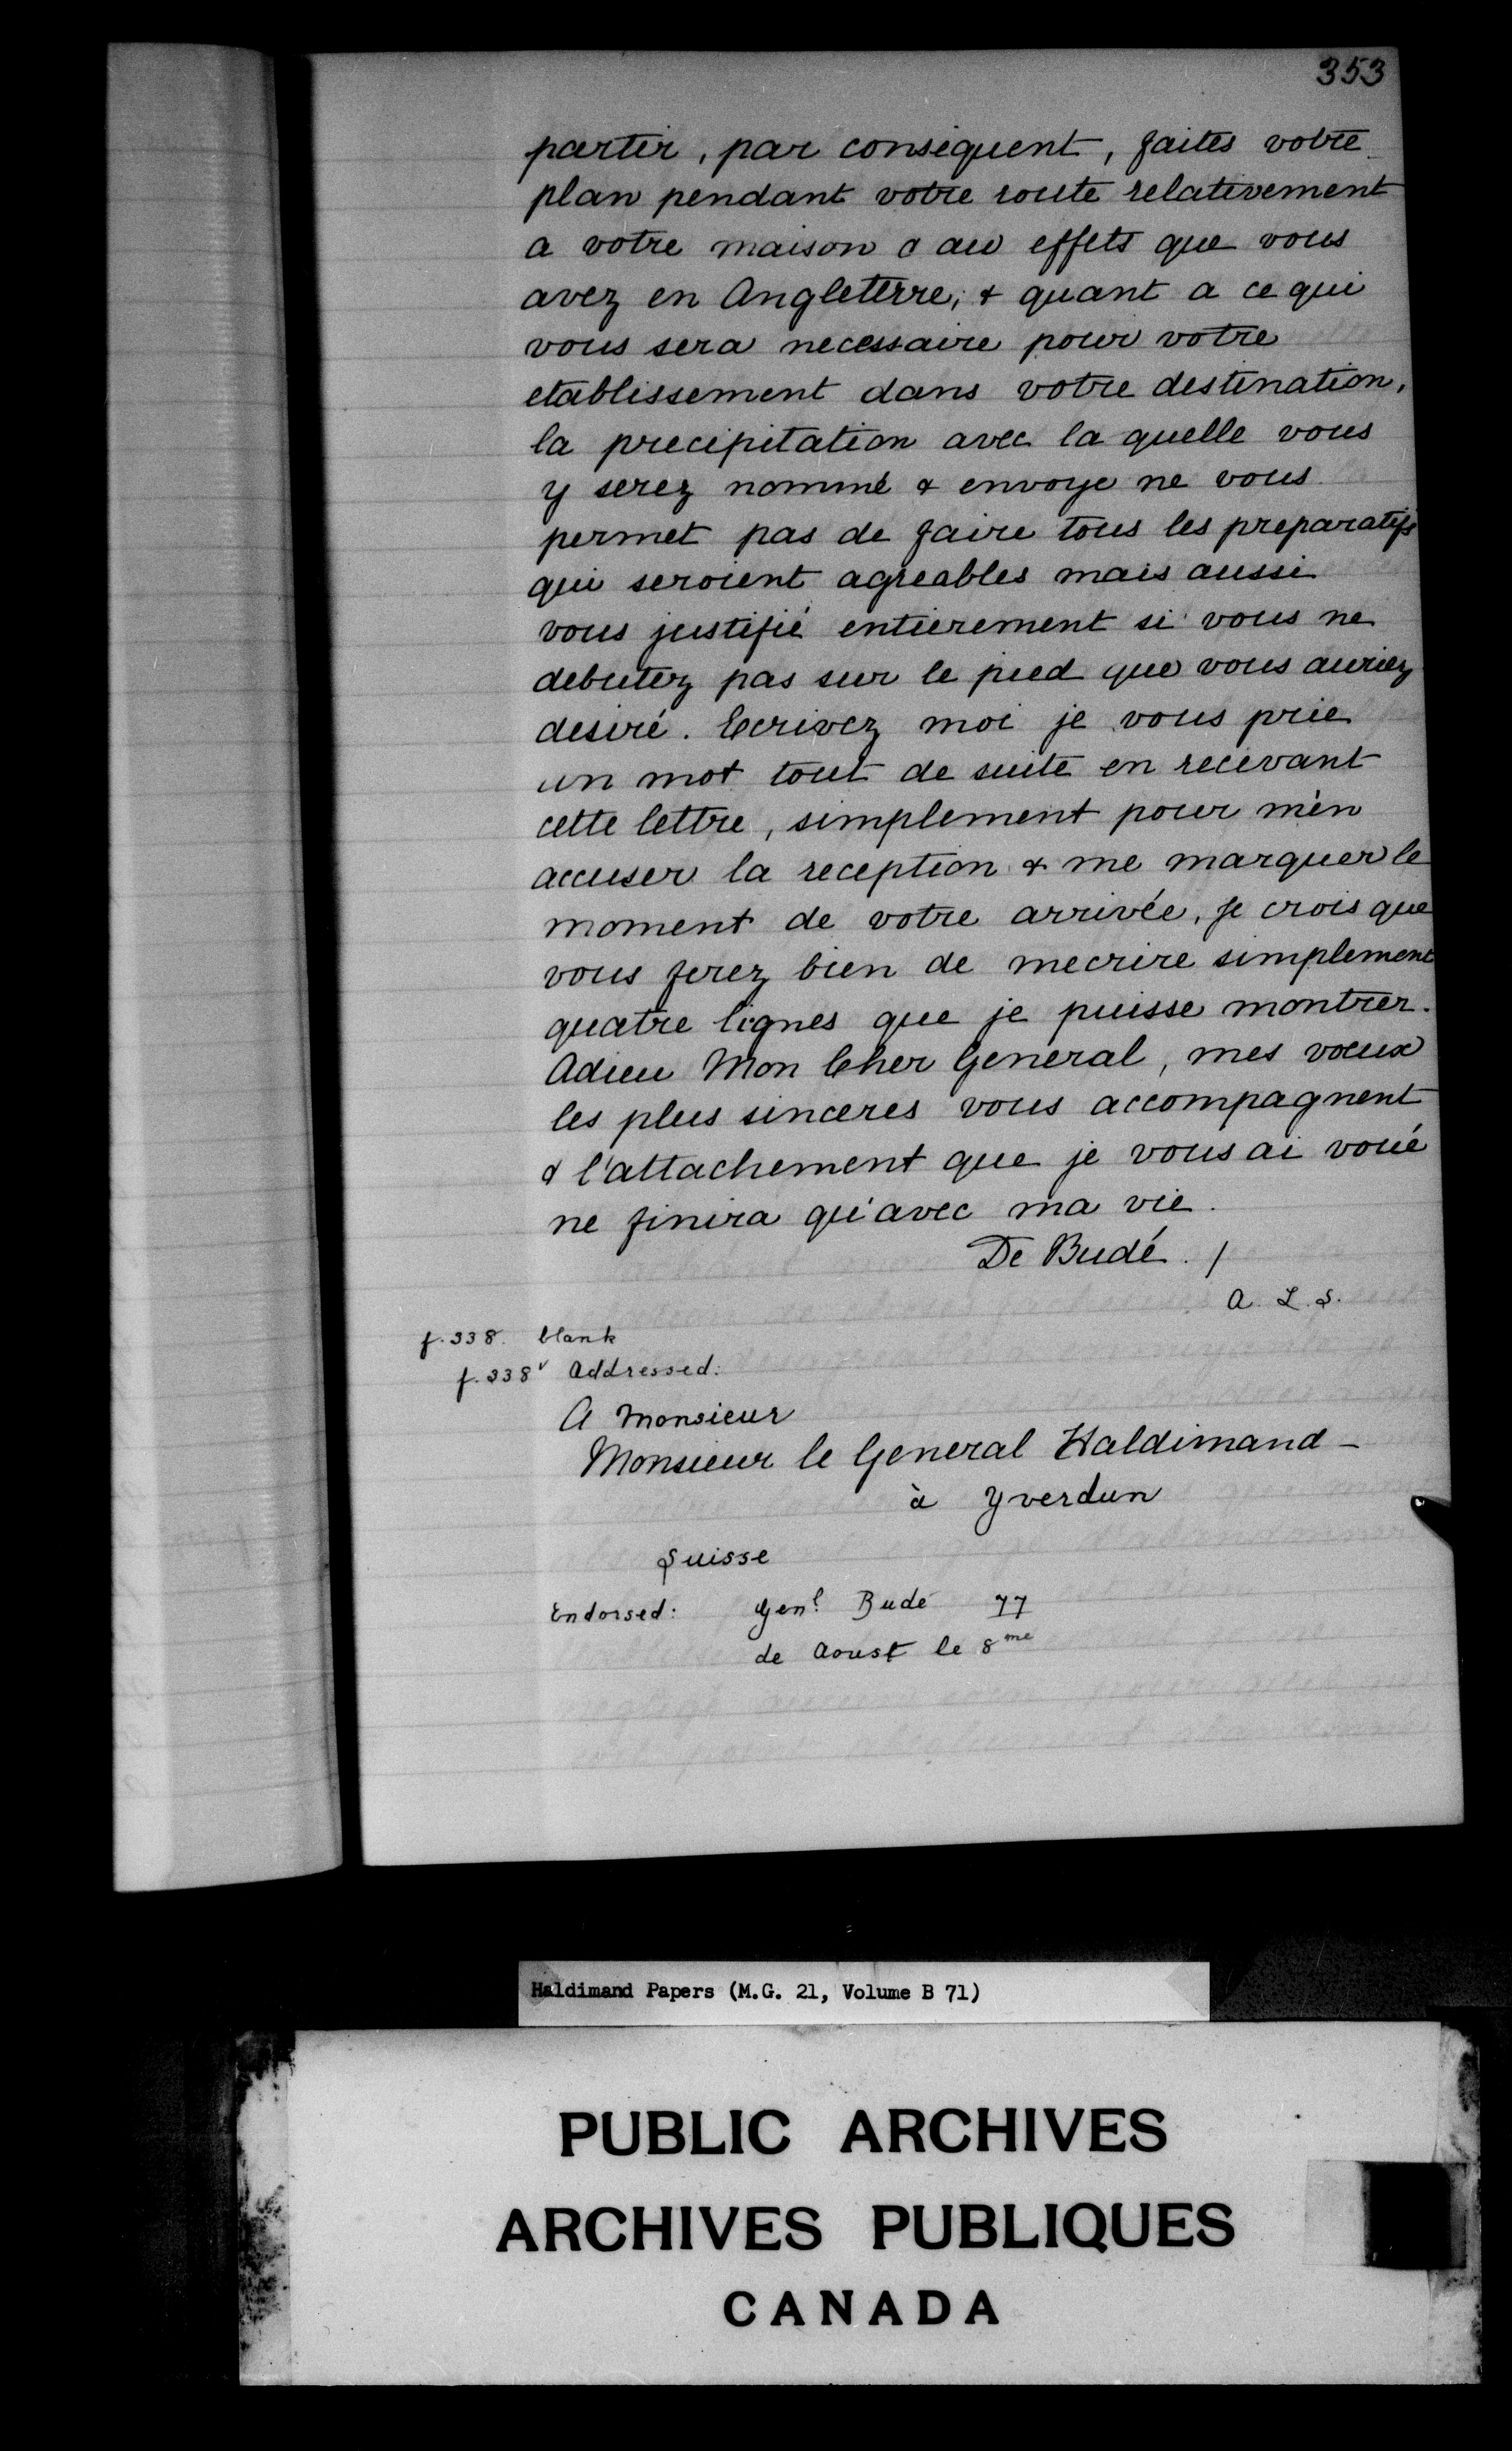 353
partir, par conséquent, faites votre
plan pendant votre route relativement
a votre maison & au effets que vous
avez en Angleterre; & quant a ce qui
vous sera necessaire pour votre
etablissement dans votre destination,
la precipitation avec la quelle vous
y serez nommé & envoye ne vous
permet pas de faire tous les preparatifs
qui seroient agreables mais aussi
vous justifié entierement si vous ne
debutez pas sur le pied que vous auriez
desiré. Ecrivez moi je vous prie
un mot tout de suite en recevant
cette lettre, simplement pour m'en
accuser la reception & me marquer le
moment de votre arrivée, Je crois que
vous ferez bien de mecrire simplement
quatre lignes que je puisse montrer.
Adieu Mon Cher General, mes voeux
les plus sinceres vous accompagnent
& l'attachement que je vous ai voué
ne finira qu'avec ma vie.
De Budé. /
A. L. S.
f. 338. blank
f. 338v Addressed:
A Monsieur
Monsieur le General Haldimand -
à Yverdun
Suisse
Endorsed: Genl Budé 77
de Aoust le 8me
Haldimand Papers (M.G. 21, Volume B 71)
PUBLIC ARCHIVES
ARCHIVES PUBLIQUES
CANADA